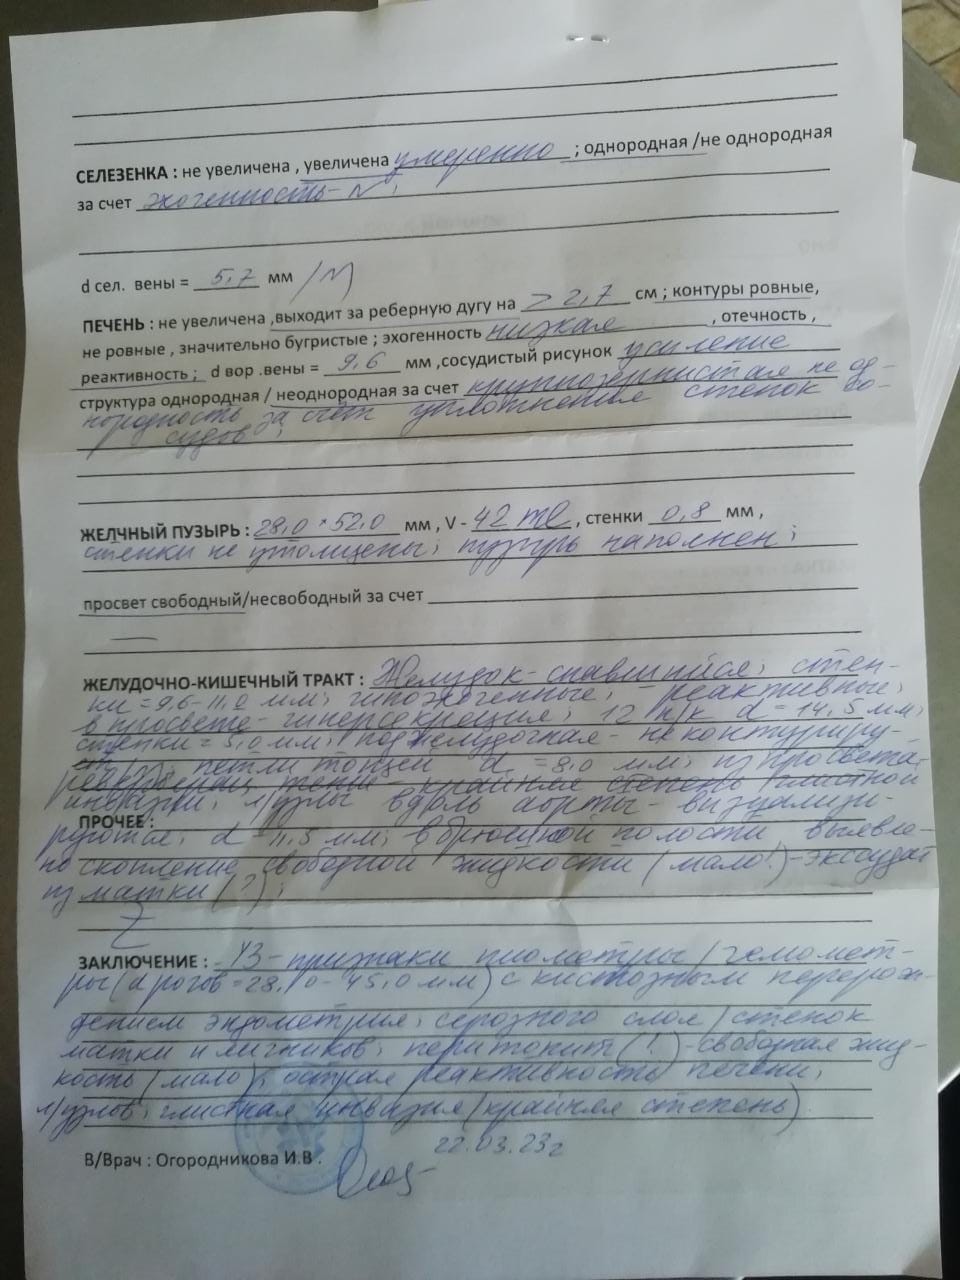 СЕЛЕЗЕНКА : не увеличена , увеличена умеренно ; однородная /не однородная
за счет эхогенность - N ;
d сел. вены = 5,7 мм / N
ПЕЧЕНЬ : не увеличена ,выходит за реберную дугу на > 2,7 см ; контуры ровные,
не ровные , значительно бугристые ; эхогенность низкая , отечность ,
реактивность ; d вор .вены = 9,6 мм ,сосудистый рисунок усиление
структура однородная / неоднородная за счет крупнозернистая не од-
нородность за счёт уплотнения стенок со-
судов ;
ЖЕЛЧНЫЙ ПУЗЫРЬ : 28,0 × 52,0 мм , V - 42 ml , стенки 0,8 мм ,
стенки не утолщены ; пузырь наполнен ;
просвет свободный/несвободный за счет
ЖЕЛУДОЧНО-КИШЕЧНЫЙ ТРАКТ : Желудок - спавшийся, стен-
ки = 9,6 - 11,0 мм, гипоэхогенные, - реактивные,
в просвете - гиперсекреция, 12 п/к d = 14,5 мм,
стенки = 5,0 мм, поджелудочная - не контуриру-
петли тощей d = 8,0 мм, из просвета
крайняя степень глистной
инвазии, л/узлы вдоль аорты - визуализи-
ПРОЧЕЕ :
руются, d = 11,5 мм, в брюшной полости выявле-
но скопление свободной жидкости (мало!) - экссудат
из матки (?) ;
ЗАКЛЮЧЕНИЕ : УЗ - признаки пиометры / гемомет-
ры (d рогов = 28,0 - 45,0 мм) с кистозным перерож-
дением эндометрия, серозного слоя / стенок
матки и яичников, перитонит (!) - свободная жид-
кость (мало), острая реактивность печени,
л/узлов, глистная инвазия (крайняя степень)
22.03.23г
В/Врач : Огородникова И.В .